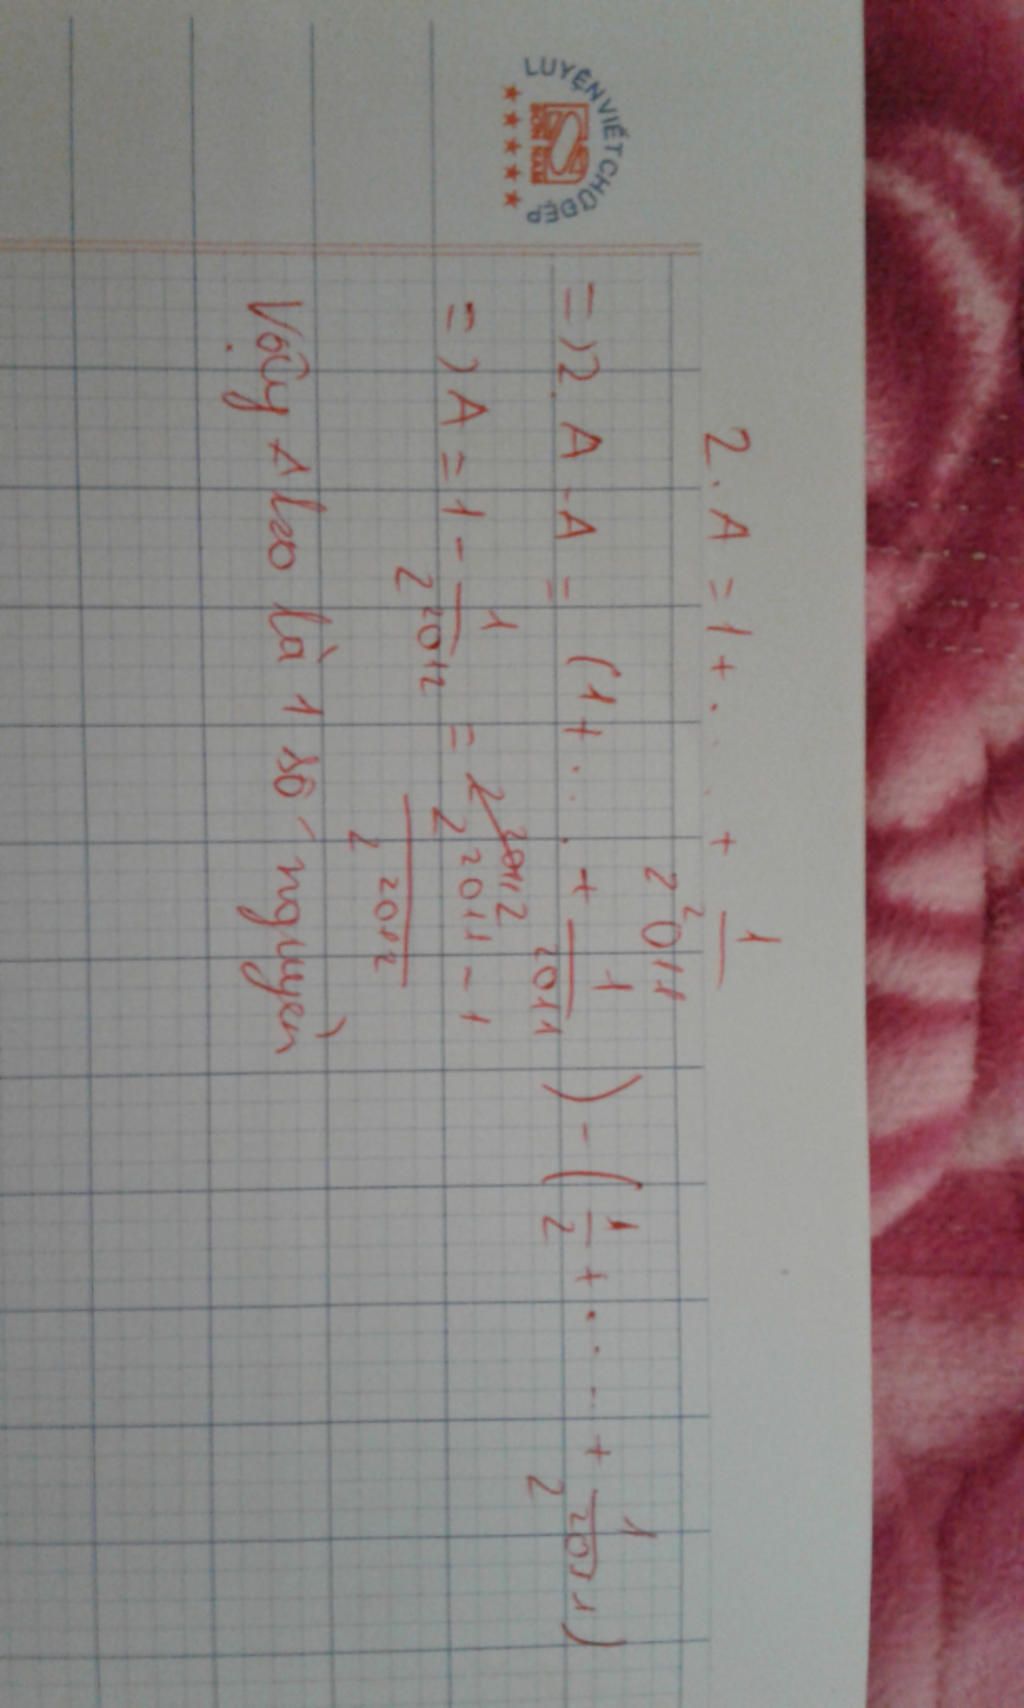 LUYỆN VIẾT CHỮ ĐẸP
2. A = 1 + ... + 1/2^2011
=) 2. A - A = (1 + ... + 1/2011) - (1/2 + .... + 1/2^2011)
=) A = 1 - 1/2^2012 = 2^2011 - 1 / 2^2012
Vậy A ko là 1 số nguyên